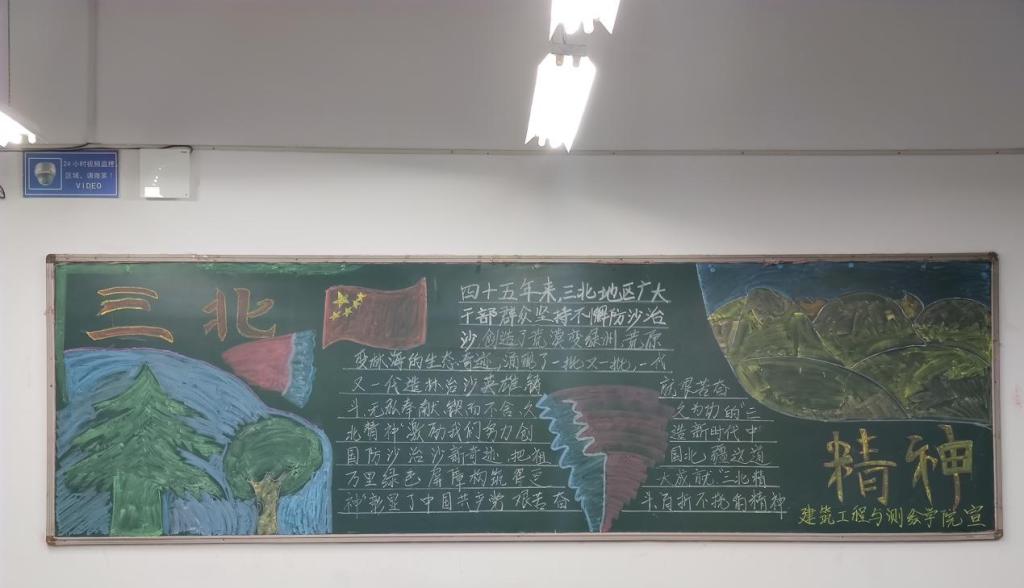 24小时视频监控
区域,请微笑!
VIDEO
三北
四十五年来,三北地区广大
干部群众坚持不懈防沙治
沙 创造了荒漠变绿洲 荒原
变林海的生态奇迹 涌现了一批又一批,一代
又一代造林治沙英雄 铸就艰苦奋
斗 无私奉献 锲而不舍、久久为功的"三
北精神"激励我们努力创造新时代中
国防沙治沙新奇迹 把祖国北疆这道
万里绿色屏障构筑得 大成就."三北精
神"彰显了中国共产党 艰苦奋斗百折不挠的精神
精神
建筑工程与测绘学院宣